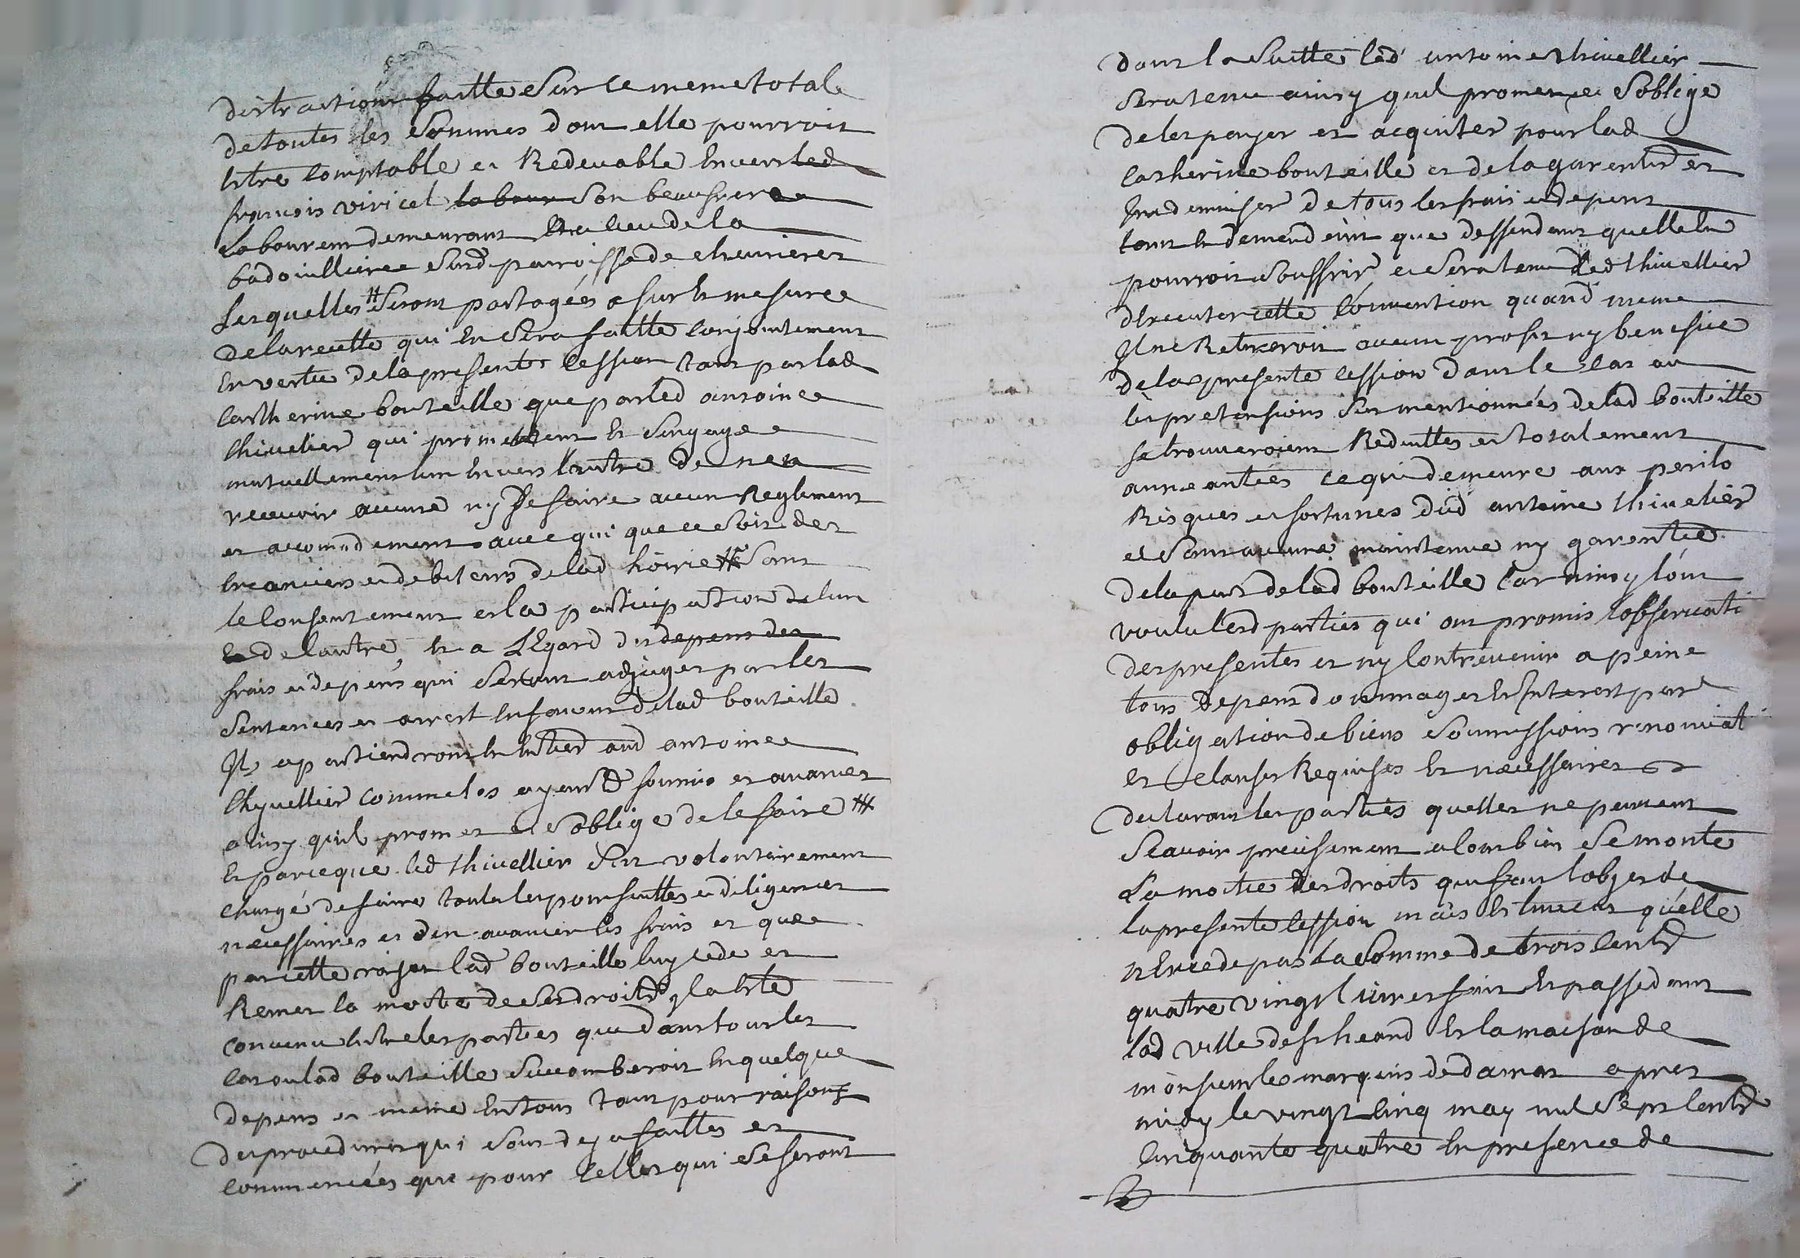 distraction faitte Sur ce meme total
de toutes les Sommes dont elle pourroit
Etre Comptable et Redevable Envers led
françois viricel la bour Son beaufrere
Laboureur demeurant En lieu de la
badoüilliere Susd parroisse de chevrieres
Lesquelles # Seront partagées a fur et mesure
de la recette qui En Sera faitte Conjointement
En vertu de la presente Cession tant par lad
Catherine bouteille que par led antoine
thivelier qui promettent Et Sengage
mutuellement lun Envers l'autre de nen
recevoir aucune ny De faire aucun Reglement
et accomodement avec qui que ce Soit des
Creanciers et debiteurs de lad hoirie # Sans
le Consentement et la participation de lun
Et de l'autre, Et a L'Egard des depens des
frais et depens qui Seront adjuges par les
Sentences et arrest En faveur de lad bouteille
Ils apartiendront En Entier aud antoine
thyvellier comme les ayant fournis et avances
ainsy quil promet et S'oblige de le faire #
Et parce que led thivellier S'est volontairement
Chargé de faire toutes les poursuittes et diligences
necessaires et d'en avancer les frais et que
par cette raison lad bouteille luy cede et
Remet la moitié de Ses droits, yla Eté
convenu Entre les parties que dans tous les
Cas ou lad bouteille Succomberoit En quelque
depens et meme En tous tant pour raison
des procedures qui Sont deja faittes et
Commencées que pour Celles qui Se feront
dans la Suitte led antoine thivellier
Sera tenu ainsy quil promet et S'oblige
de les payer et acquiter pour lad
Catherine bouteille et de la garentir et
Indemniser de tous les frais et depens
tant En demandeurs que deffendant quelle En
pourroit Souffrir, et Sera tenu Led thivellier
d'Executer cette Convention quand meme
Il ne Retireroit aucun profit ny benefice
de la presente Cession dans le Cas ou
les pretensions Sus mentionnées de lad bouteille
Se trouveroient Reduittes et totalement
anneantiës ce qui demeure aux perils
Risques et fortunes dud antoine thivelier
et Sans aucune maintenue ny garentie
de la part de lad bouteille Car ainsy lont
voulu lesd parties qui ont promis l'observati
des presentes et ny Contrevenir a peine
tous Depens dommages Et Interest par
obligation de biens Soumissions renonciat
et Clauses Requises Et necessaires
declarant les parties quelles ne peuvent
Scavoir precisement a Combien Se monte
La moitie Des droits qui font l'objet de
la presente Cession mais Estiment qu'elle
n'Excede pas La Somme de trois Cents
quatre vingt livres fait Et passé dans
lad ville de St heand Et la maison de
monsieur le marquis de damas apres
midy le vingt Cinq may mil Sept Cents
Cinquante quatre En presence de